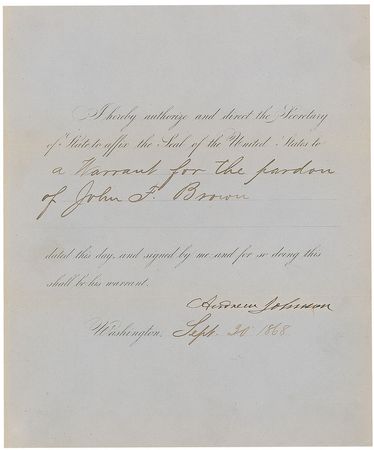 I hereby authorize and direct the Secretary
of State to affix the Seal of the United States to
a Warrant for the pardon
of John F. Brown
dated this day, and signed by me and for so doing this
shall be his warrant.
Andrew Johnson
Washington, Sept. 20 1868